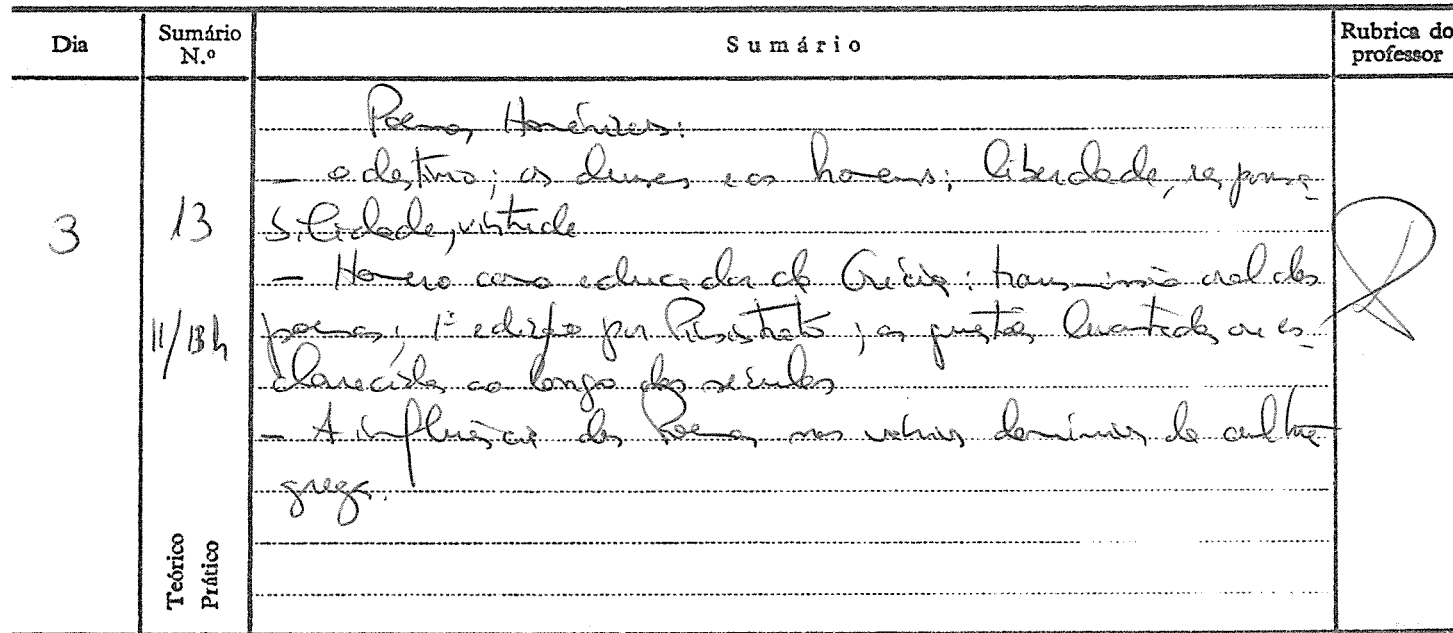 Dia
Sumário N.º
Sumário
Rubrica do professor
3
13
11/13h
Teórico
Prático
Poemas Homéricos:
– o destino; os deuses e os homens; liberdade, responsa-
bilidade, virtude
– Homero como educador da Grécia: transmissão oral dos
poemas; 1ª edição por Pisístrato; as questões levantadas ou es-
clarecidas ao longo dos séculos
– A influência dos Poemas nos vários domínios da cultura
grega.